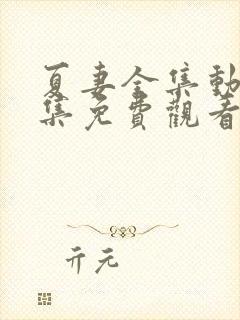 夏妻全集動
集免費觀看
亓元